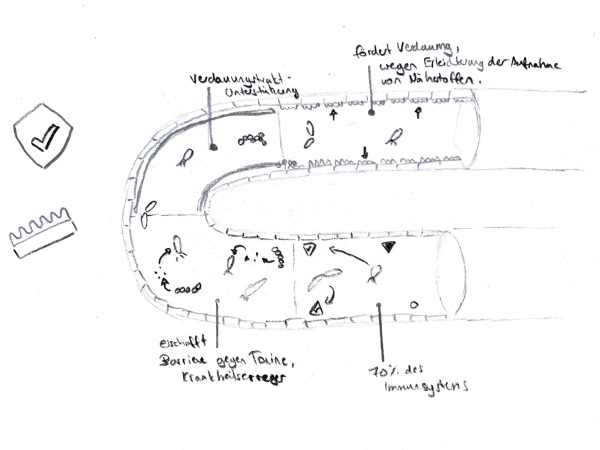 Verdauungstrakt-
unterstützung
fördert Verdauung,
wegen Erleichterung der Aufnahme
von Nährstoffen.
erschafft
Barriere gegen Toxine,
Krankheitserreger
70% des
Immunsystems